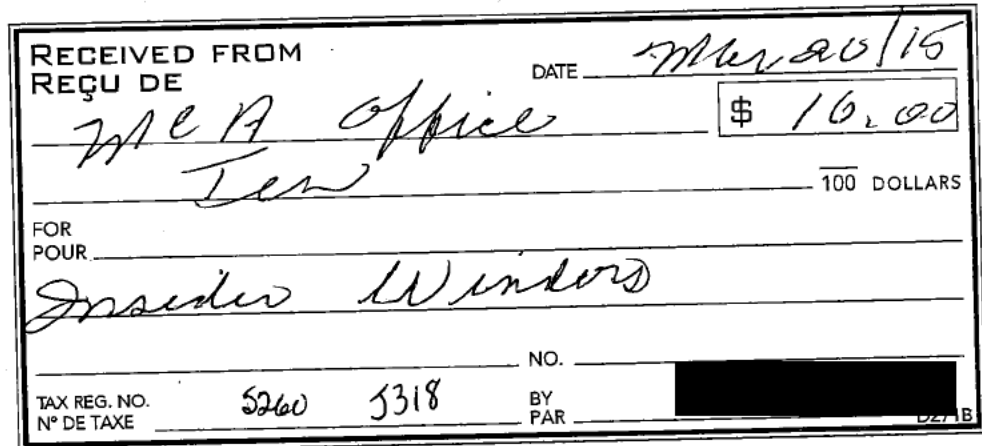 RECEIVED FROM
REÇU DE
DATE Mar 20/15
MCA Office
$ 10.00
Ten
100 DOLLARS
FOR
POUR
Inside Windows
NO.
TAX REG. NO.
N° DE TAXE
5260 5318
BY
PAR